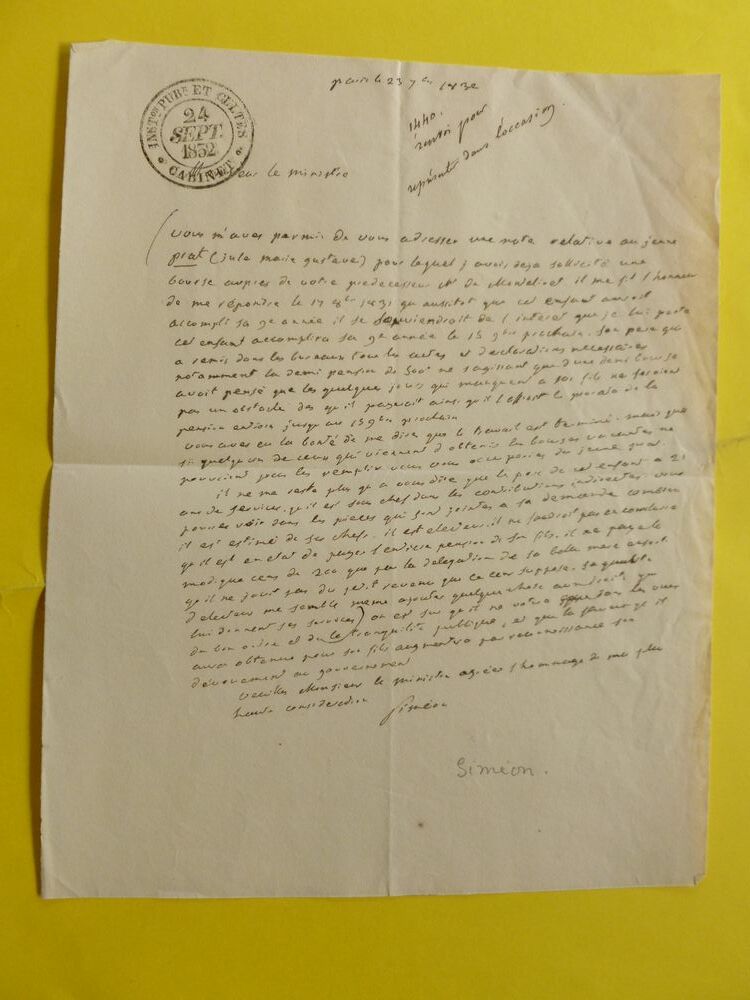 paris le 23 7bre 1832
INSTon PUBe ET CULTES
24
SEPT.
1832
CABINET
1440.
renvoi pour
représenter dans l'occasion.
Monsieur le ministre
vous m'aves permis de vous adresser une note relative au jeune
prat (jule marie gustave) pour lequel j avois deja sollicité une
bourse aupres de votre predecesseur Mr de Montalivet il me fit l honneur
de me répondre le 17 8bre 1831 qu aussitot que cet enfant auroit
accompli sa 9e année il se souviendrait de l interet que je lui porte
cet enfant accomplira sa 9e année le 15 9bre prochain. Son pere qui
a remis dans les bureaux tous les actes et declarations necessaires
notamment la demi pension de 500f ne sagissant que d une demi bourse
avoit pensé que les quelques jours qui manquent a son fils ne seroient
pas un obstacle des qu il payeroit ainsi qu il l offroit le prorata de la
pension entiere jusqu au 15 9bre prochain
vous aves eu la bonté de me dire que le travail est terminé. mais que
si quelqu un de ceux qui viennent d obtenir les bourses vacantes ne
pouvoient pas les remplir vous vous occuperies du jeune prat.
il ne me reste plus qu a vous dire que le pere de cet enfant a 21
ans de services, qu il est sous chef dans les contributions indirectes. vous
pourres voir dans les pieces qui sont jointes a sa demande combien
il est estimé de ses chefs. il est electeur. il ne faudroit pas en conclure
qu il est en etat de payer l entiere pension de son fils. il ne paye le
modique cens de 200 que par la delegation de sa belle mere ensorte
qu il ne jouit pas du petit revenu que ce cens suppose. sa qualité
d electeur me semble meme ajouter quelque chose aux droits que
lui donnent ses services) on est sur qu il ne votera que dans les vues
du bon ordre et de la tranquilité publique, et que la faveur qu il
aura obtenue pour son fils augmentera par reconnoissance son
dévouement au gouvernement
veuilles Monsieur le ministre agréer l hommage de ma plus
haute consideration
Siméon
Siméon.